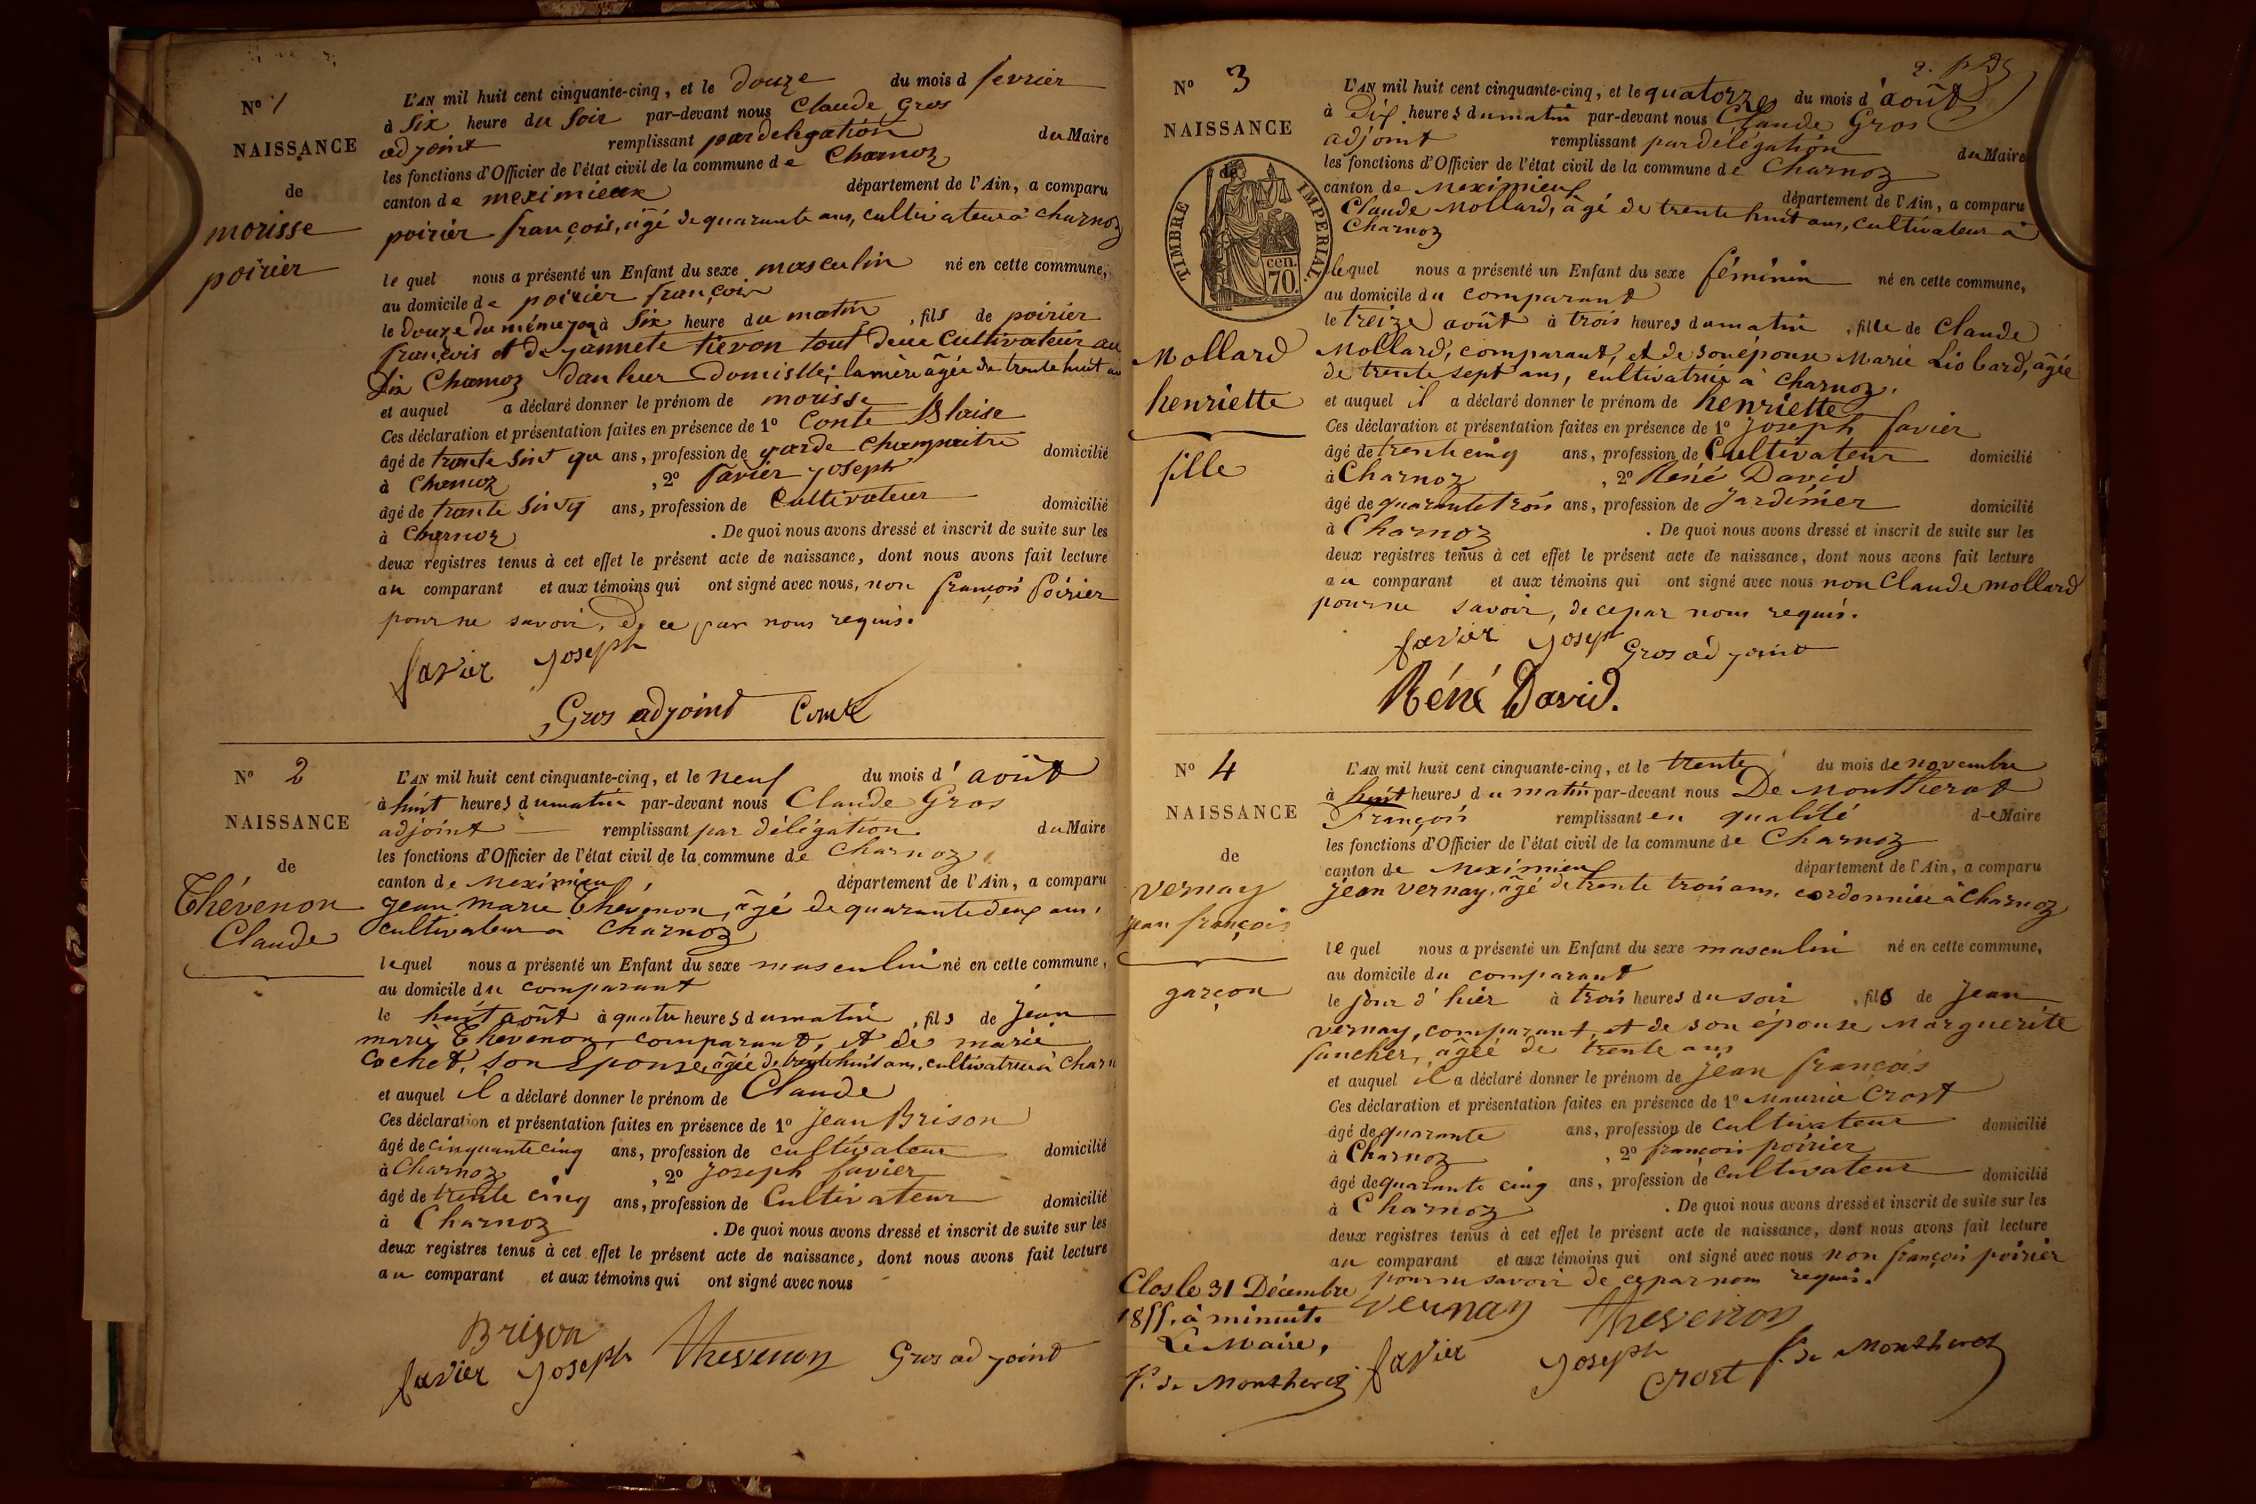 N° 1
NAISSANCE
de
morisse
poirier
L'AN mil huit cent cinquante-cinq, et le douze du mois d fevrier
à Six heure du Soir par-devant nous Claude Gros
adjoint remplissant par delegation du Maire
les fonctions d'Officier de l'état civil de la commune de Charnoz
canton de meximieux département de l'Ain, a comparu
poirier françois, âgé de quarante ans, cultivateur à charnoz
le quel nous a présenté un Enfant du sexe masculin né en cette commune,
au domicile de poirier françois
le douze du même jour à Six heure du matin, fils de poirier
françois et de jannete tievon tout deux Cultivateur au
dit Charnoz dan leur Domisile; la mère âgée de trente huit an
et auquel a déclaré donner le prénom de morisse
Ces déclaration et présentation faites en présence de 1° Conte Blaise
âgé de trante ans, profession de garde Champaitre domicilié
à Charnoz, 2° favier joseph
âgé de trante ans, profession de Cultivateur domicilié
à Charnoz. De quoi nous avons dressé et inscrit de suite sur les
deux registres tenus à cet effet le présent acte de naissance, dont nous avons fait lecture
au comparant et aux témoins qui ont signé avec nous, non françois Poirier
pour ne savoir, de ce par nous requis.
favier joseph
Gros adjoint Comte
N° 2
NAISSANCE
de
Thévenon
Claude
L'AN mil huit cent cinquante-cinq, et le neuf du mois d'août
à huit heures du matin par-devant nous Claude Gros
adjoint — remplissant par délégation du Maire
les fonctions d'Officier de l'état civil de la commune de Charnoz
canton de Meximieux département de l'Ain, a comparu
jean marie Thévenon, âgé de quarante deux ans,
cultivateur à Charnoz
lequel nous a présenté un Enfant du sexe masculin né en cette commune,
au domicile du comparant
le huit août à quatre heures du matin, fils de jean
marie Thévenon, comparant, et de marie
Cochet, son Epouse, âgée de trente huit ans, cultivatrice à Charn
et auquel il a déclaré donner le prénom de Claude
Ces déclaration et présentation faites en présence de 1° Jean Brison
âgé de cinquante cinq ans, profession de cultivateur domicilié
à Charnoz, 2° Joseph favier
âgé de trente cinq ans, profession de Cultivateur domicilié
à Charnoz. De quoi nous avons dressé et inscrit de suite sur les
deux registres tenus à cet effet le présent acte de naissance, dont nous avons fait lecture
au comparant et aux témoins qui ont signé avec nous
Brison
favier joseph Thevenon Gros adjoint
N° 3
NAISSANCE
TIMBRE IMPERIAL
cen. 70.
Mollard
henriette
fille
L'AN mil huit cent cinquante-cinq, et le quatorze du mois d'août
à Dix heures du matin par-devant nous Claude Gros
adjoint remplissant par délégation du Maire
les fonctions d'Officier de l'état civil de la commune de Charnoz
canton de Meximieux département de l'Ain, a comparu
Claude Mollard, âgé de trente huit ans, cultivateur à
Charnoz
lequel nous a présenté un Enfant du sexe féminin né en cette commune,
au domicile du comparant
le treize août à trois heures du matin, fille de Claude
Mollard, comparant, et de son épouse Marie Liobard, âgée
de trente sept ans, cultivatrice à Charnoz,
et auquel il a déclaré donner le prénom de henriette
Ces déclaration et présentation faites en présence de 1° Joseph favier
âgé de trente cinq ans, profession de Cultivateur domicilié
à Charnoz, 2° René David
âgé de quarante trois ans, profession de Jardinier domicilié
à Charnoz. De quoi nous avons dressé et inscrit de suite sur les
deux registres tenus à cet effet le présent acte de naissance, dont nous avons fait lecture
au comparant et aux témoins qui ont signé avec nous non Claude mollard
pour ne savoir, de ce par nous requis.
favier joseph Gros adjoint
Réné David.
N° 4
NAISSANCE
de
Vernay
jean françois
garçon
L'AN mil huit cent cinquante-cinq, et le trente du mois de novembre
à huit heures du matin par-devant nous De Montherot
François remplissant en qualité de Maire
les fonctions d'Officier de l'état civil de la commune de Charnoz
canton de Meximieux département de l'Ain, a comparu
jean Vernay, âgé de trente trois ans, cordonnier à Charnoz
lequel nous a présenté un Enfant du sexe masculin né en cette commune,
au domicile du comparant
le jour d'hier à trois heures du soir, fils de Jean
Vernay, comparant, et de son épouse Marguerite
fancher, âgée de trente ans
et auquel il a déclaré donner le prénom de jean françois
Ces déclaration et présentation faites en présence de 1° Maurice Crost
âgé de quarante ans, profession de cultivateur domicilié
à Charnoz, 2° françois poirier
âgé de quarante cinq ans, profession de cultivateur domicilié
à Charnoz. De quoi nous avons dressé et inscrit de suite sur les
deux registres tenus à cet effet le présent acte de naissance, dont nous avons fait lecture
au comparant et aux témoins qui ont signé avec nous non françois poirier
pour ne savoir de ce par nous requis.
Vernay Thevenon
favier joseph Crost f. de Montherot
Clos le 31 Décembre
1855, à minuit.
Le Maire,
f. de Montherot